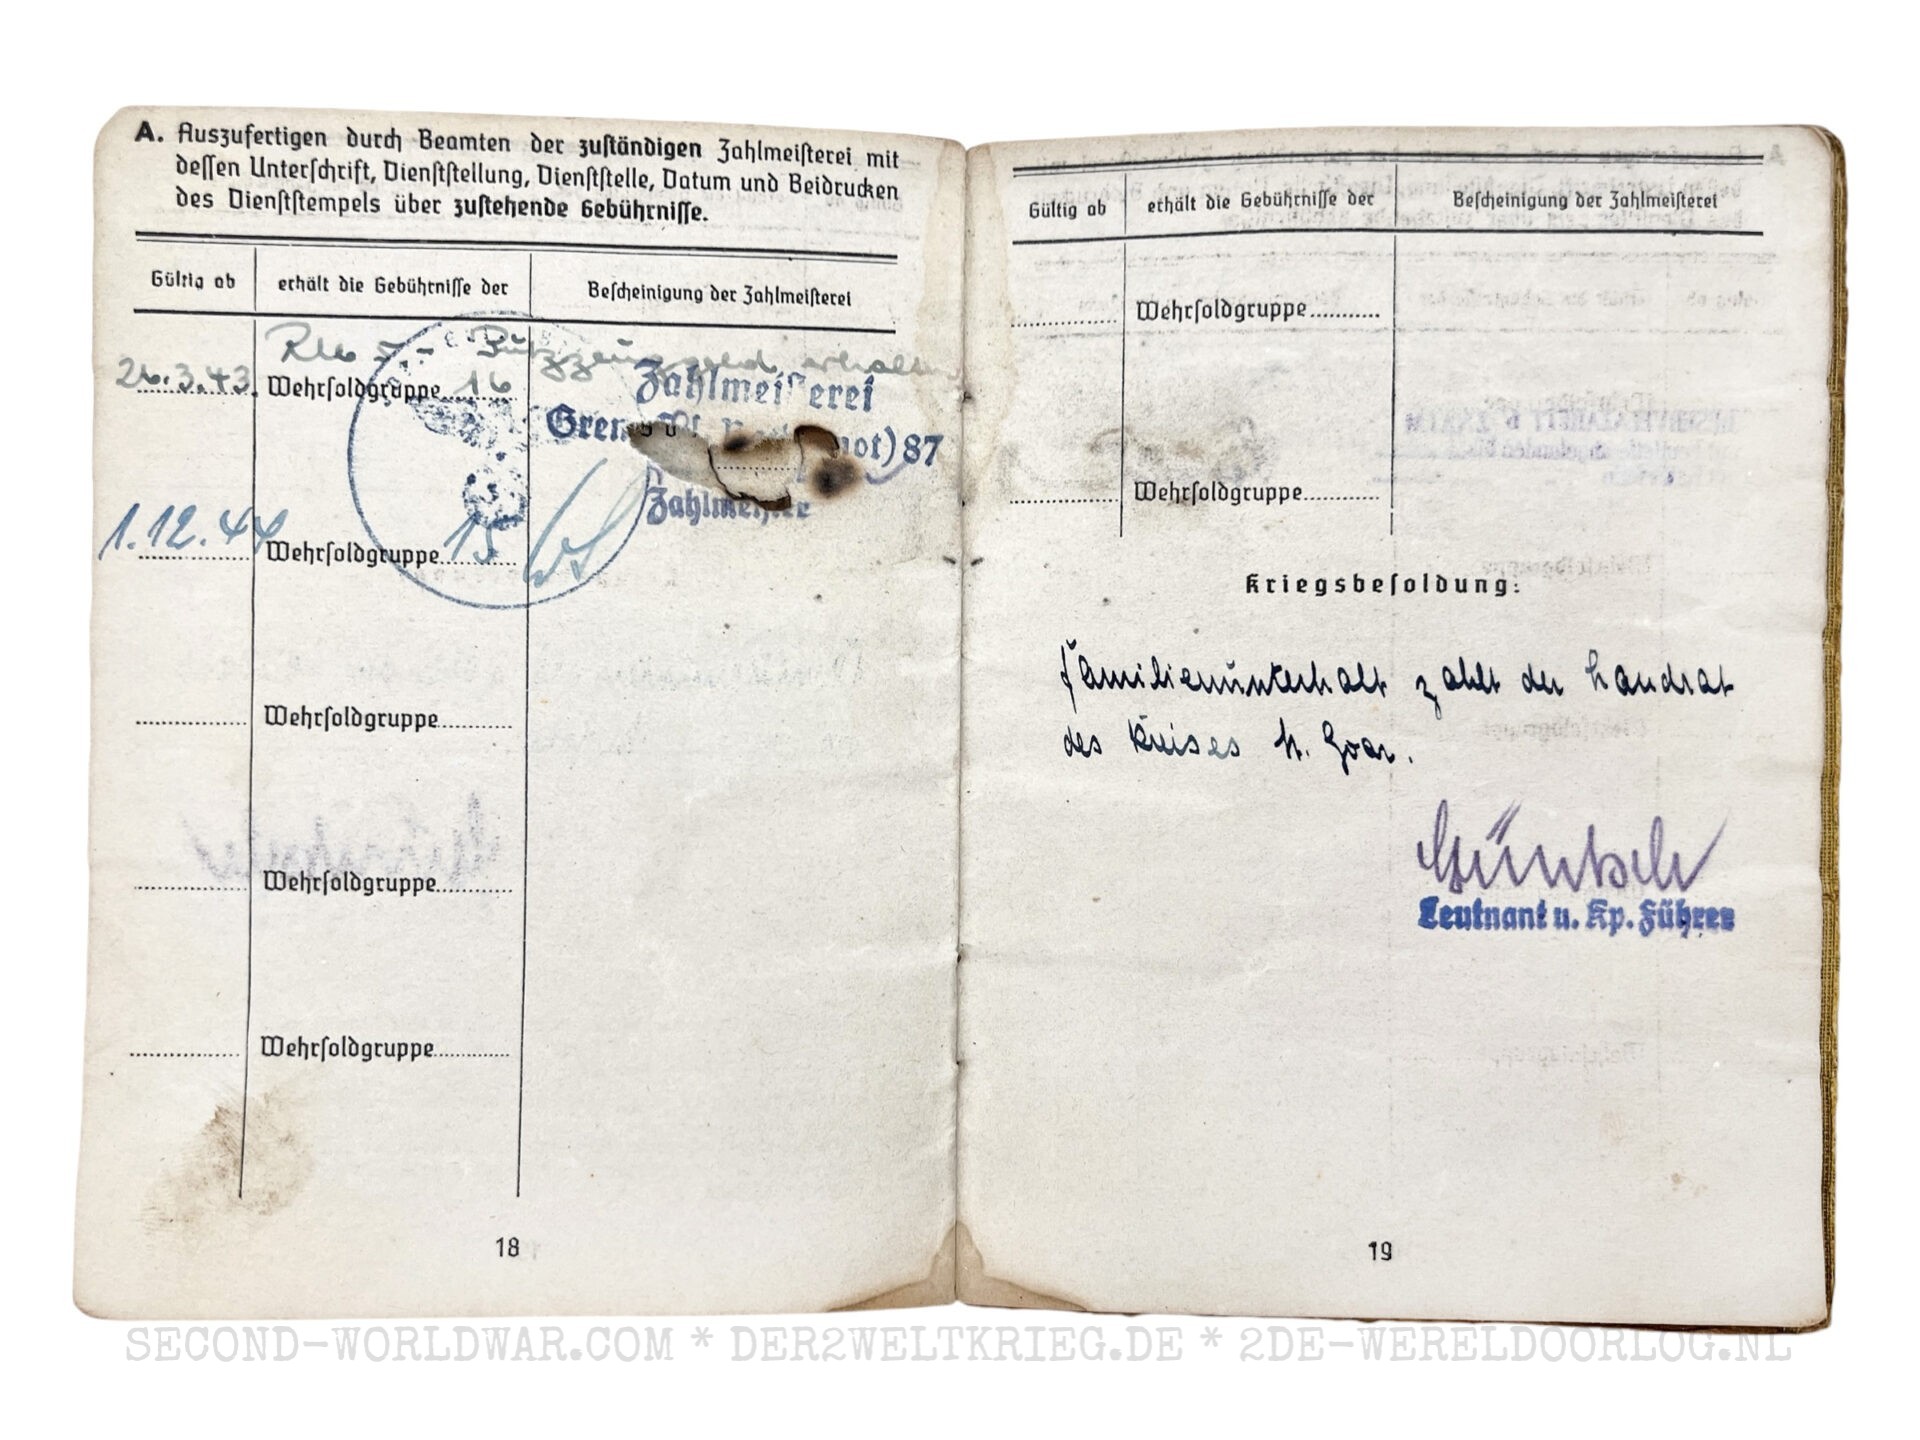 A. Auszufertigen durch Beamten der zuständigen Zahlmeisterei mit
dessen Unterschrift, Dienststellung, Dienststelle, Datum und Beidrucken
des Dienststempels über zustehende Gebührnisse.
Gültig ab erhält die Gebührnisse der Bescheinigung der Zahlmeisterei
Putzzeuggeld erhalten
26.3.43. Wehrsoldgruppe 16
Zahlmeisterei
87
Zahlmeister
1.12.44 Wehrsoldgruppe 15
Wehrsoldgruppe
Wehrsoldgruppe
Wehrsoldgruppe
18
Gültig ab erhält die Gebührnisse der Bescheinigung der Zahlmeisterei
Wehrsoldgruppe
Wehrsoldgruppe
Kriegsbesoldung:
Familienunterhalt zahlt der Landrat
des Kreises St. Goar.
Leutnant u. Kp. Führer
19
SECOND-WORLDWAR.COM * DER2WELTKRIEG.DE * 2DE-WERELDOORLOG.NL